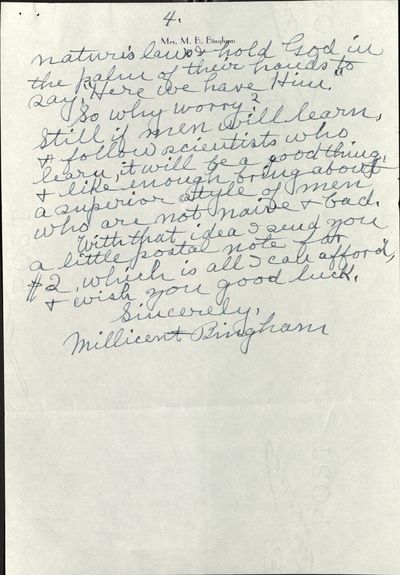 4.
Mrs. M. B. Bingham
nature's laws & hold God in
the palm of their hands to
say, "Here we have Him."
So why worry?
Still if men will learn,
& follow scientists who
learn, it will be a good thing,
& like enough bring about
a superior style of men
who are not naive & bad.
With that idea I send you
a little postal note for
$2, which is all I can afford,
& wish you good luck.
Sincerely,
Millicent Bingham